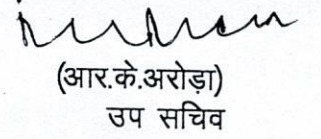 (आर.के.अरोड़ा)
उप सचिव